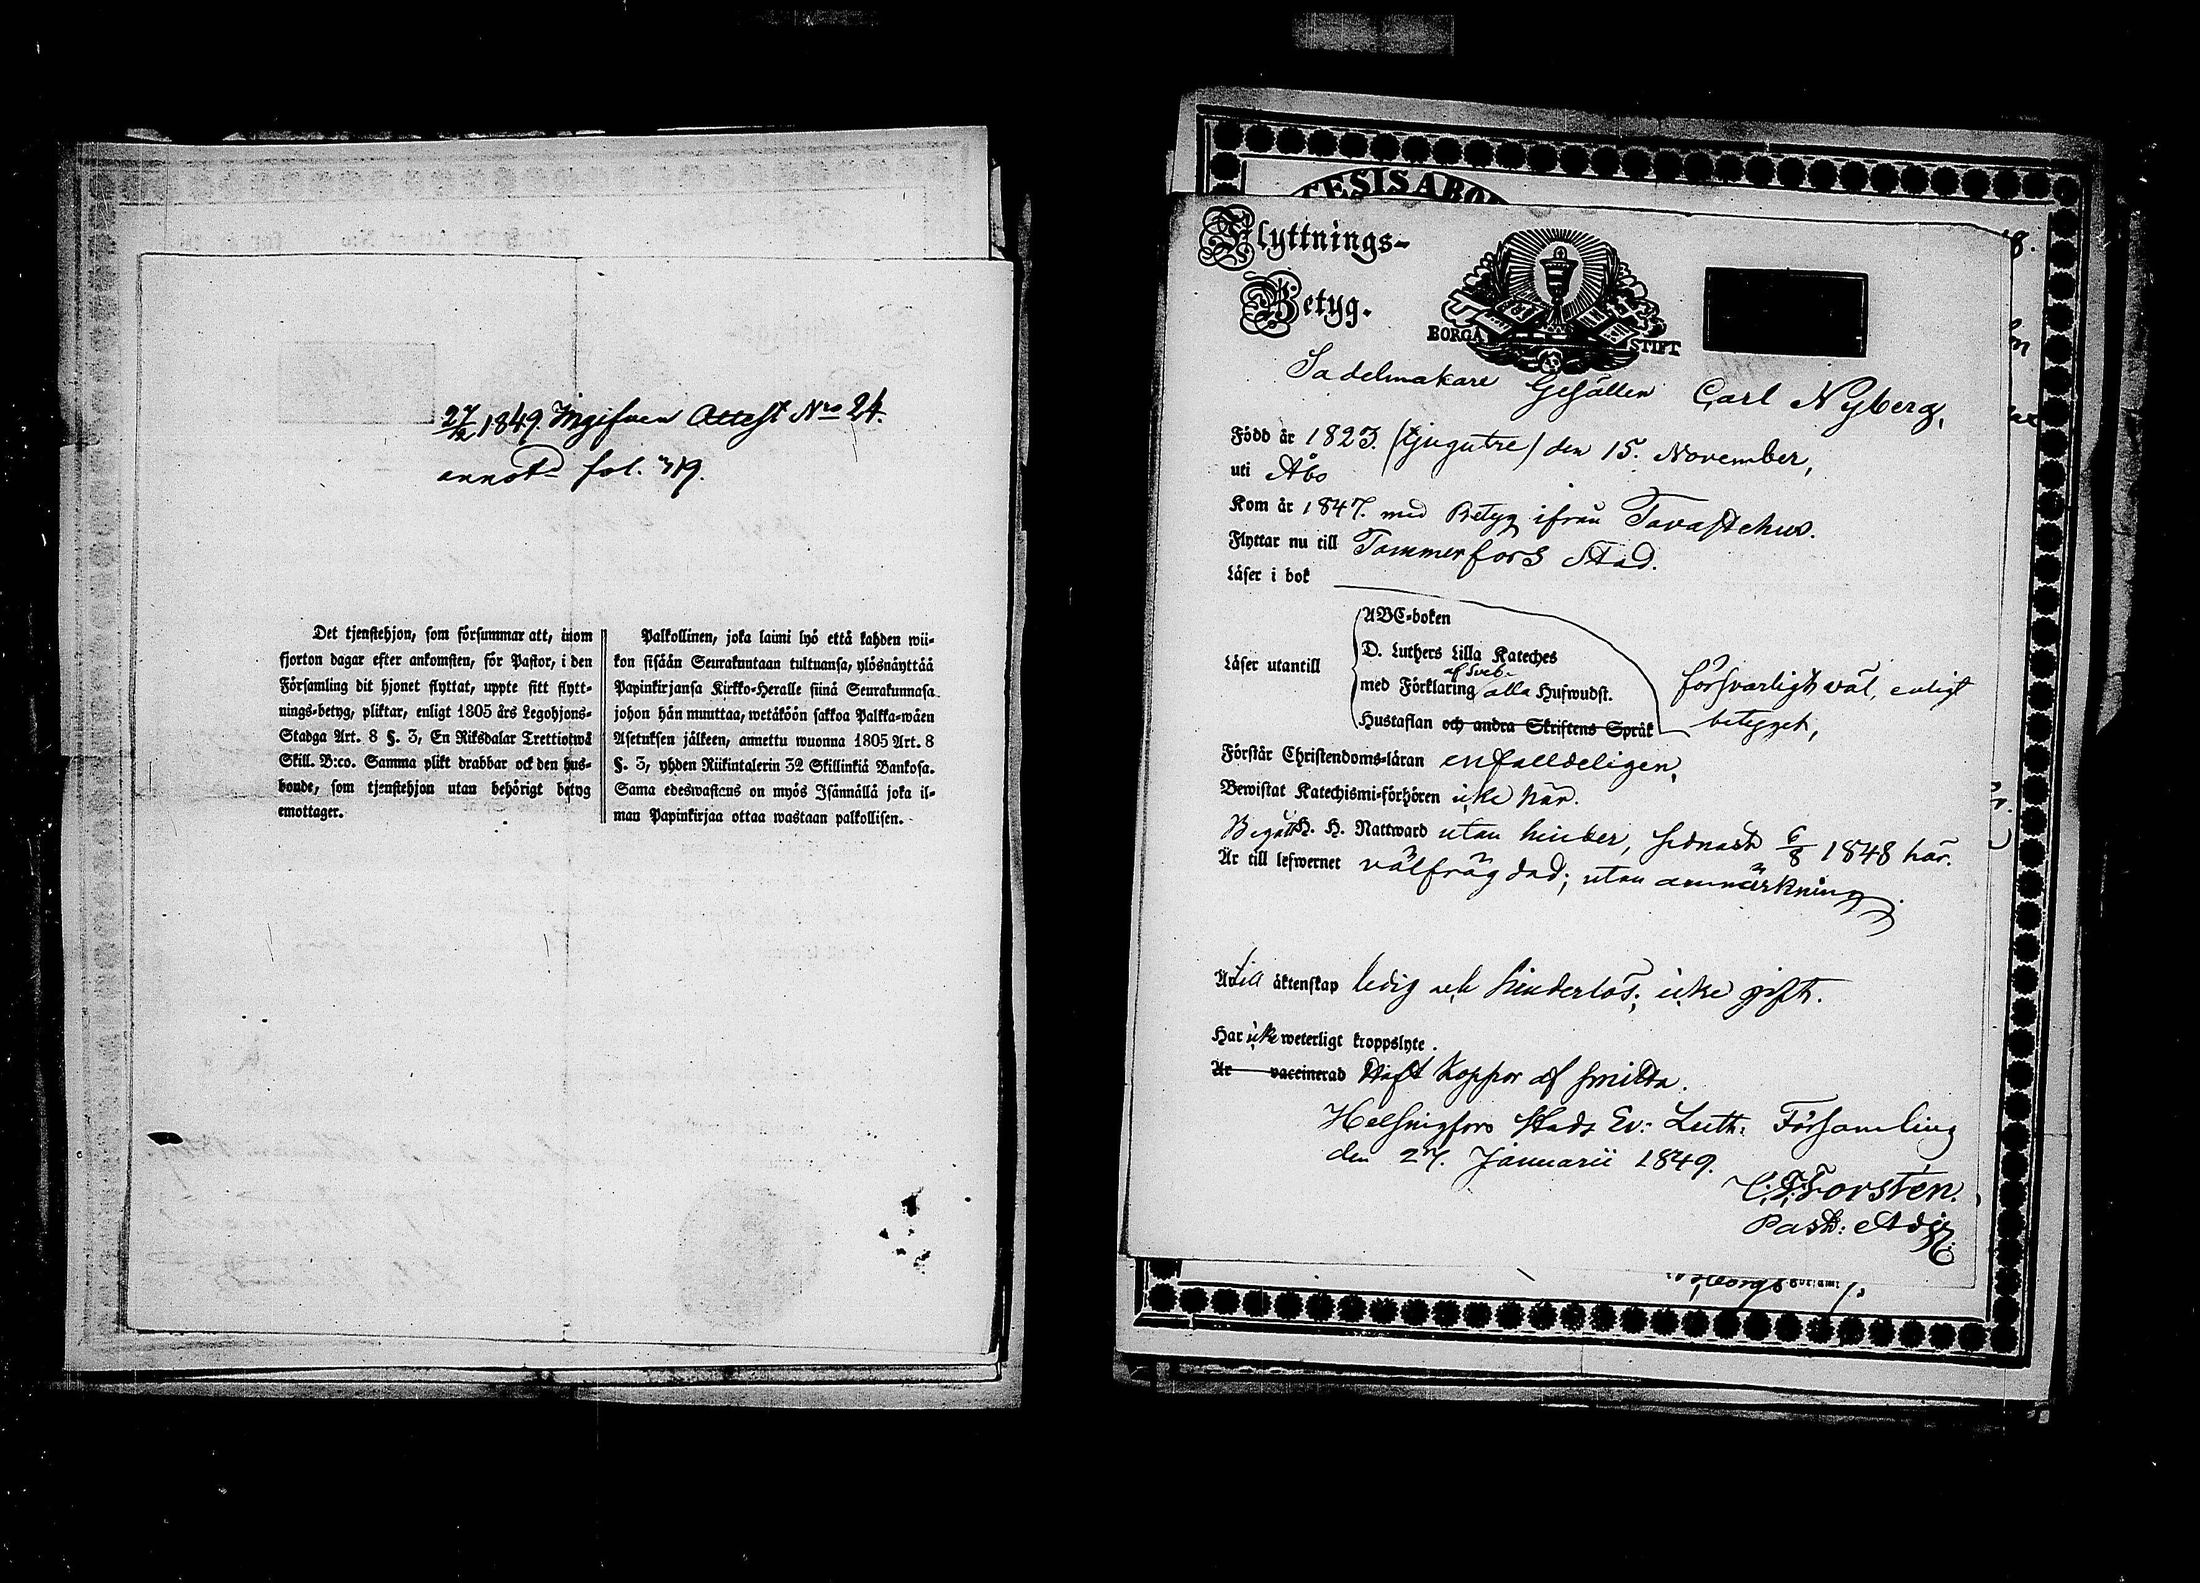 27/12 1849. Ingifven Attest Nro 24.
annotd fol. 319.
Det tjenstehjon, som försummar att, inom
fjorton dagar efter ankomsten, för Pastor, i den
Församling dit hjonet flyttat, uppte sitt flytt-
nings-betyg, pliktar, enligt 1805 års Legohjons-
Stadga Art. 8 §. 3, En Riksdalar Trettiotwå
Skill. B:co. Samma plikt drabbar ock den hus-
bonde, som tjenstehjon utan behörigt betyg
emottager.
Palkollinen, joka laimi lyö että kahden wii-
kon sisään Seurakuntaan tultuansa, ylösnäyttää
Papinkirjansa Kirkko-Heralle siinä Seurakunnasa
johon hän muuttaa, wetäköön sakkoa Palkka-wäen
Asetuksen jälkeen, annettu wuonna 1805 Art. 8
§. 3, yhden Riikintalerin 32 Skillinkiä Bankosa.
Sama edeswastaus on myös Isännällä joka il-
man Papinkirjaa ottaa wastaan palkollisen.
TESIS ABO
Flyttnings-
Betyg.
BORGÅ STIFT
Sadelmakare Gesällen Carl Nyberg,
Född år 1823. (tjugutre) den 15. November,
uti Åbo
Kom år 1847. med Betyg ifrån Tavastehus.
Flyttar nu till Tammerfors Stad.
Läser i bok
Läser utantill
ABC-boken
D. Luthers Lilla Kateches
med Förklaring af Sveb. alla Hufwudst.
Hustaflan och andra Skriftens Språk
försvarligt väl, enligt
betyget,
Förstår Christendoms-läran enfalldeligen,
Bewistat Katechismi-förhören icke här.
Begått H. H. Nattward utan hinder, sednast 6/8 1848 här.
Är till lefwernet välfrägdad; utan anmärkning.
Är till äktenskap ledig och hinderlös; icke gift.
Har icke weterligt kroppslyte.
Är vaccinerad Haft Koppor af smitta.
Helsingfors Stads Ev: Luth: Församling
den 27. Januarii 1849.
C. F. Forstén.
Past: Adj: